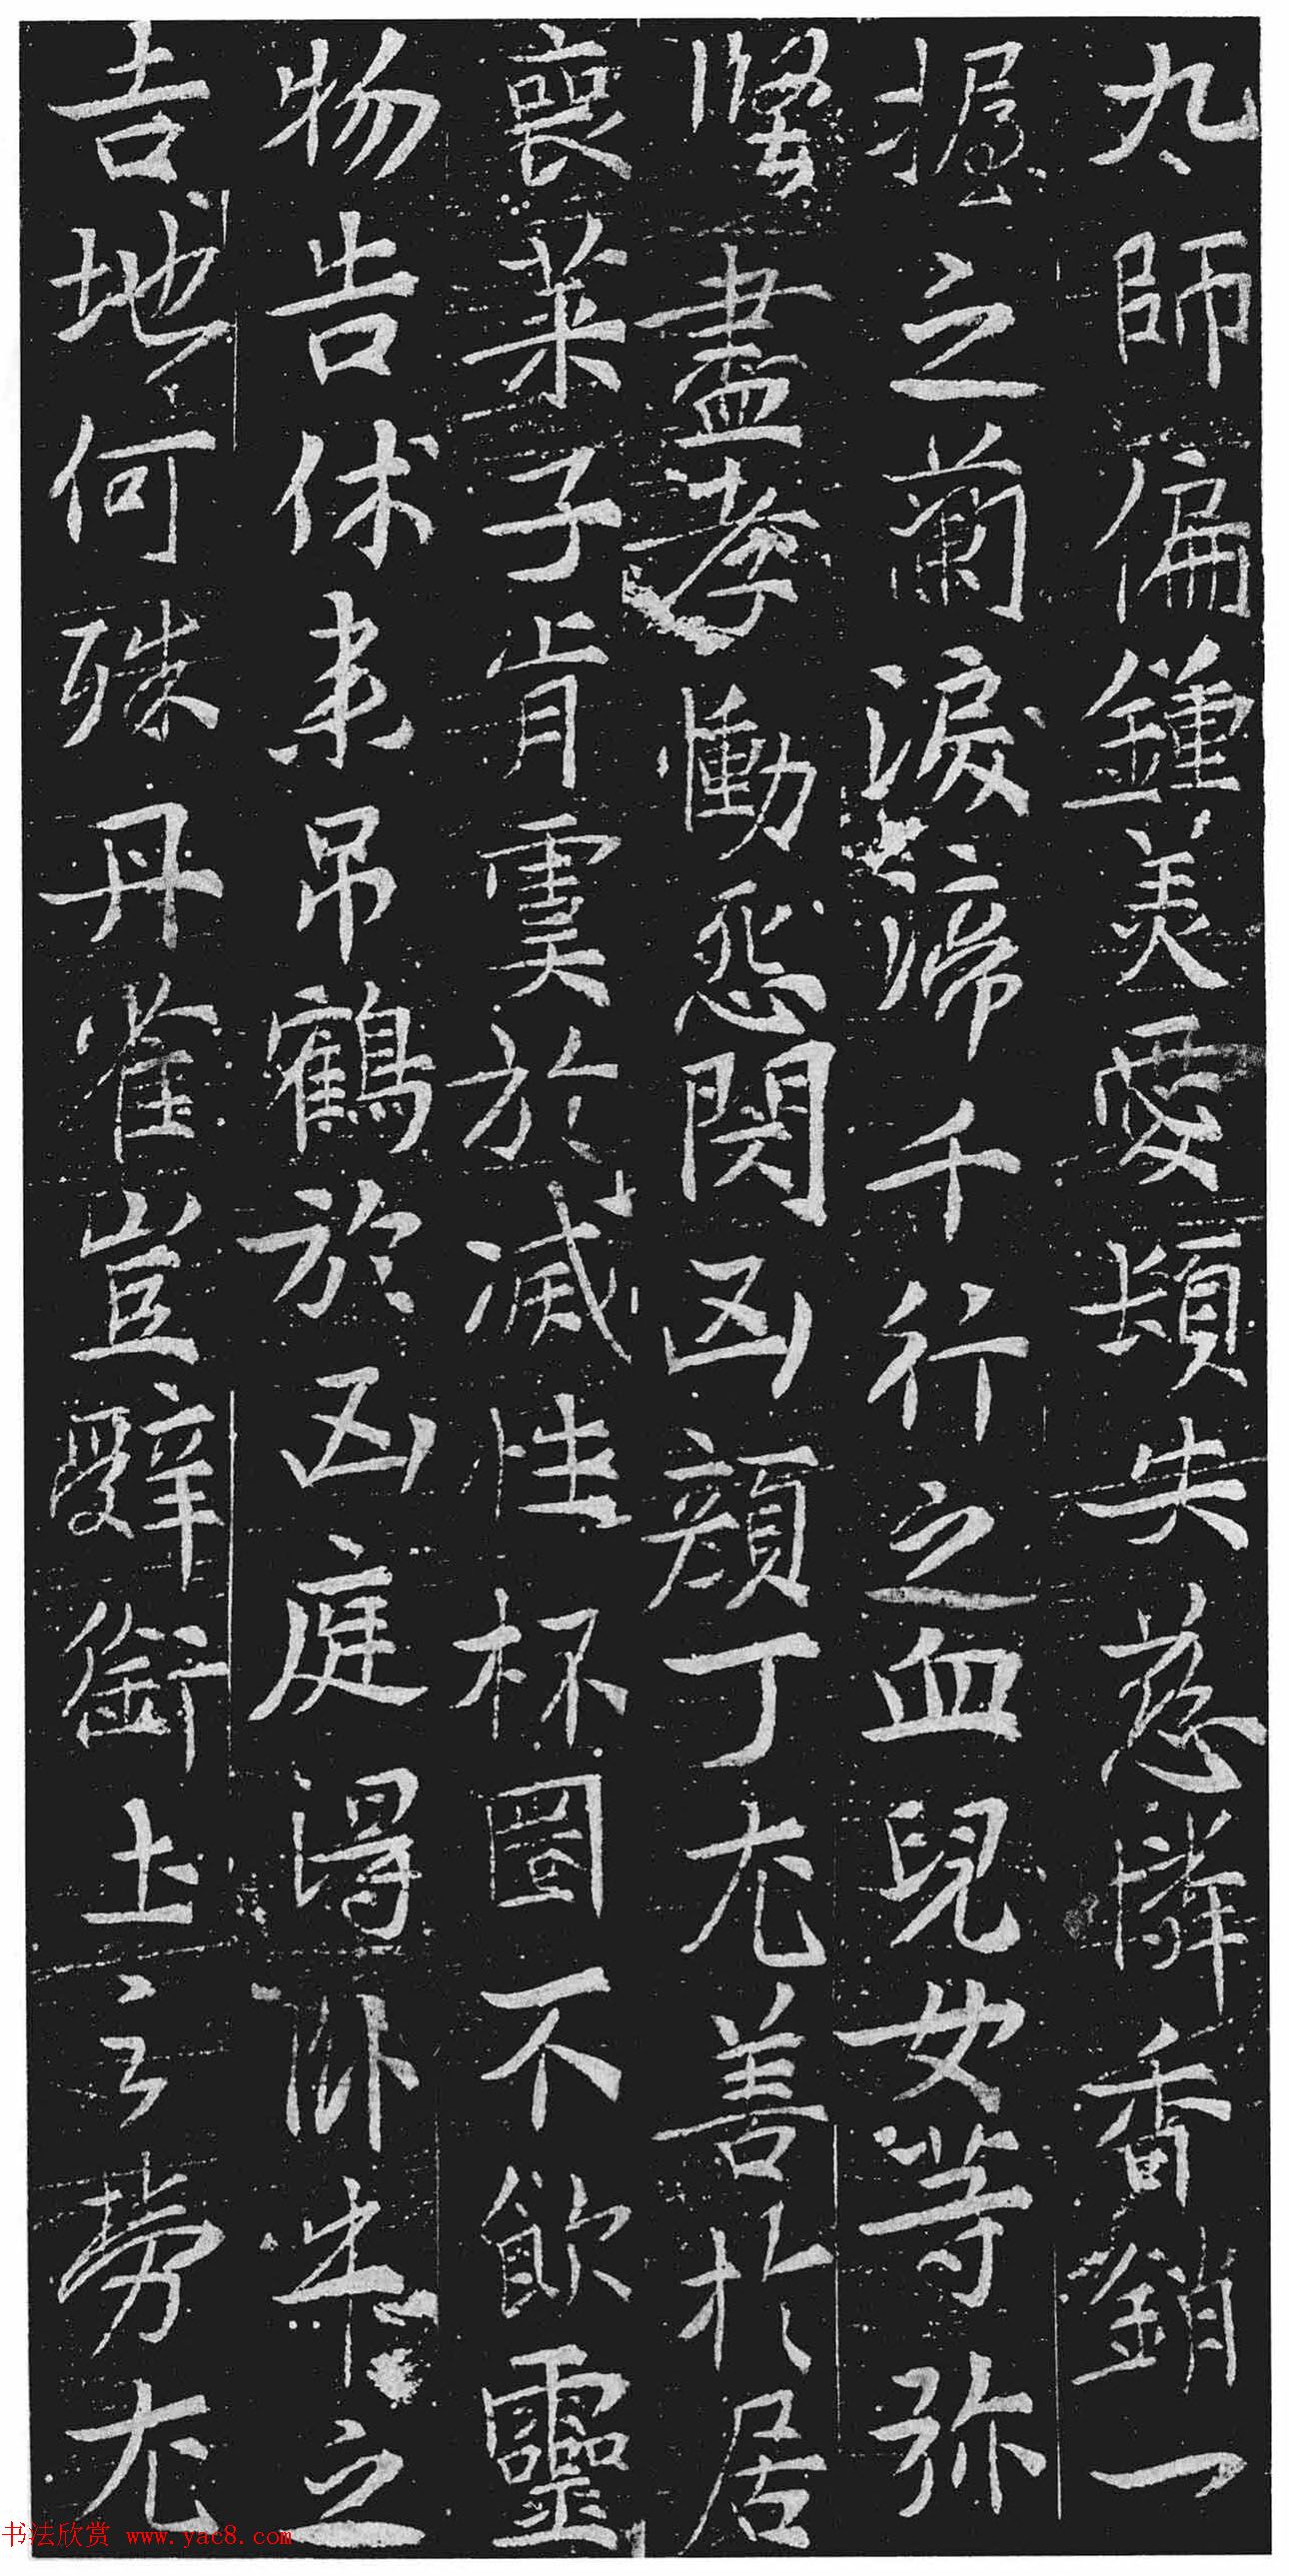 丸師偏鍾美愛頃失慈憐香銷一
握之蘭淚渧千行之血兒女等弥
堅盡孝慟怨閔凶顔丁尤善於居
喪萊子肯虧於滅性杯圈不飲靈
物告休来吊鶴於凶庭得臥牛之
吉地何殊丹雀豈辭銜土之勞尤
书法欣赏 www.yac8.com